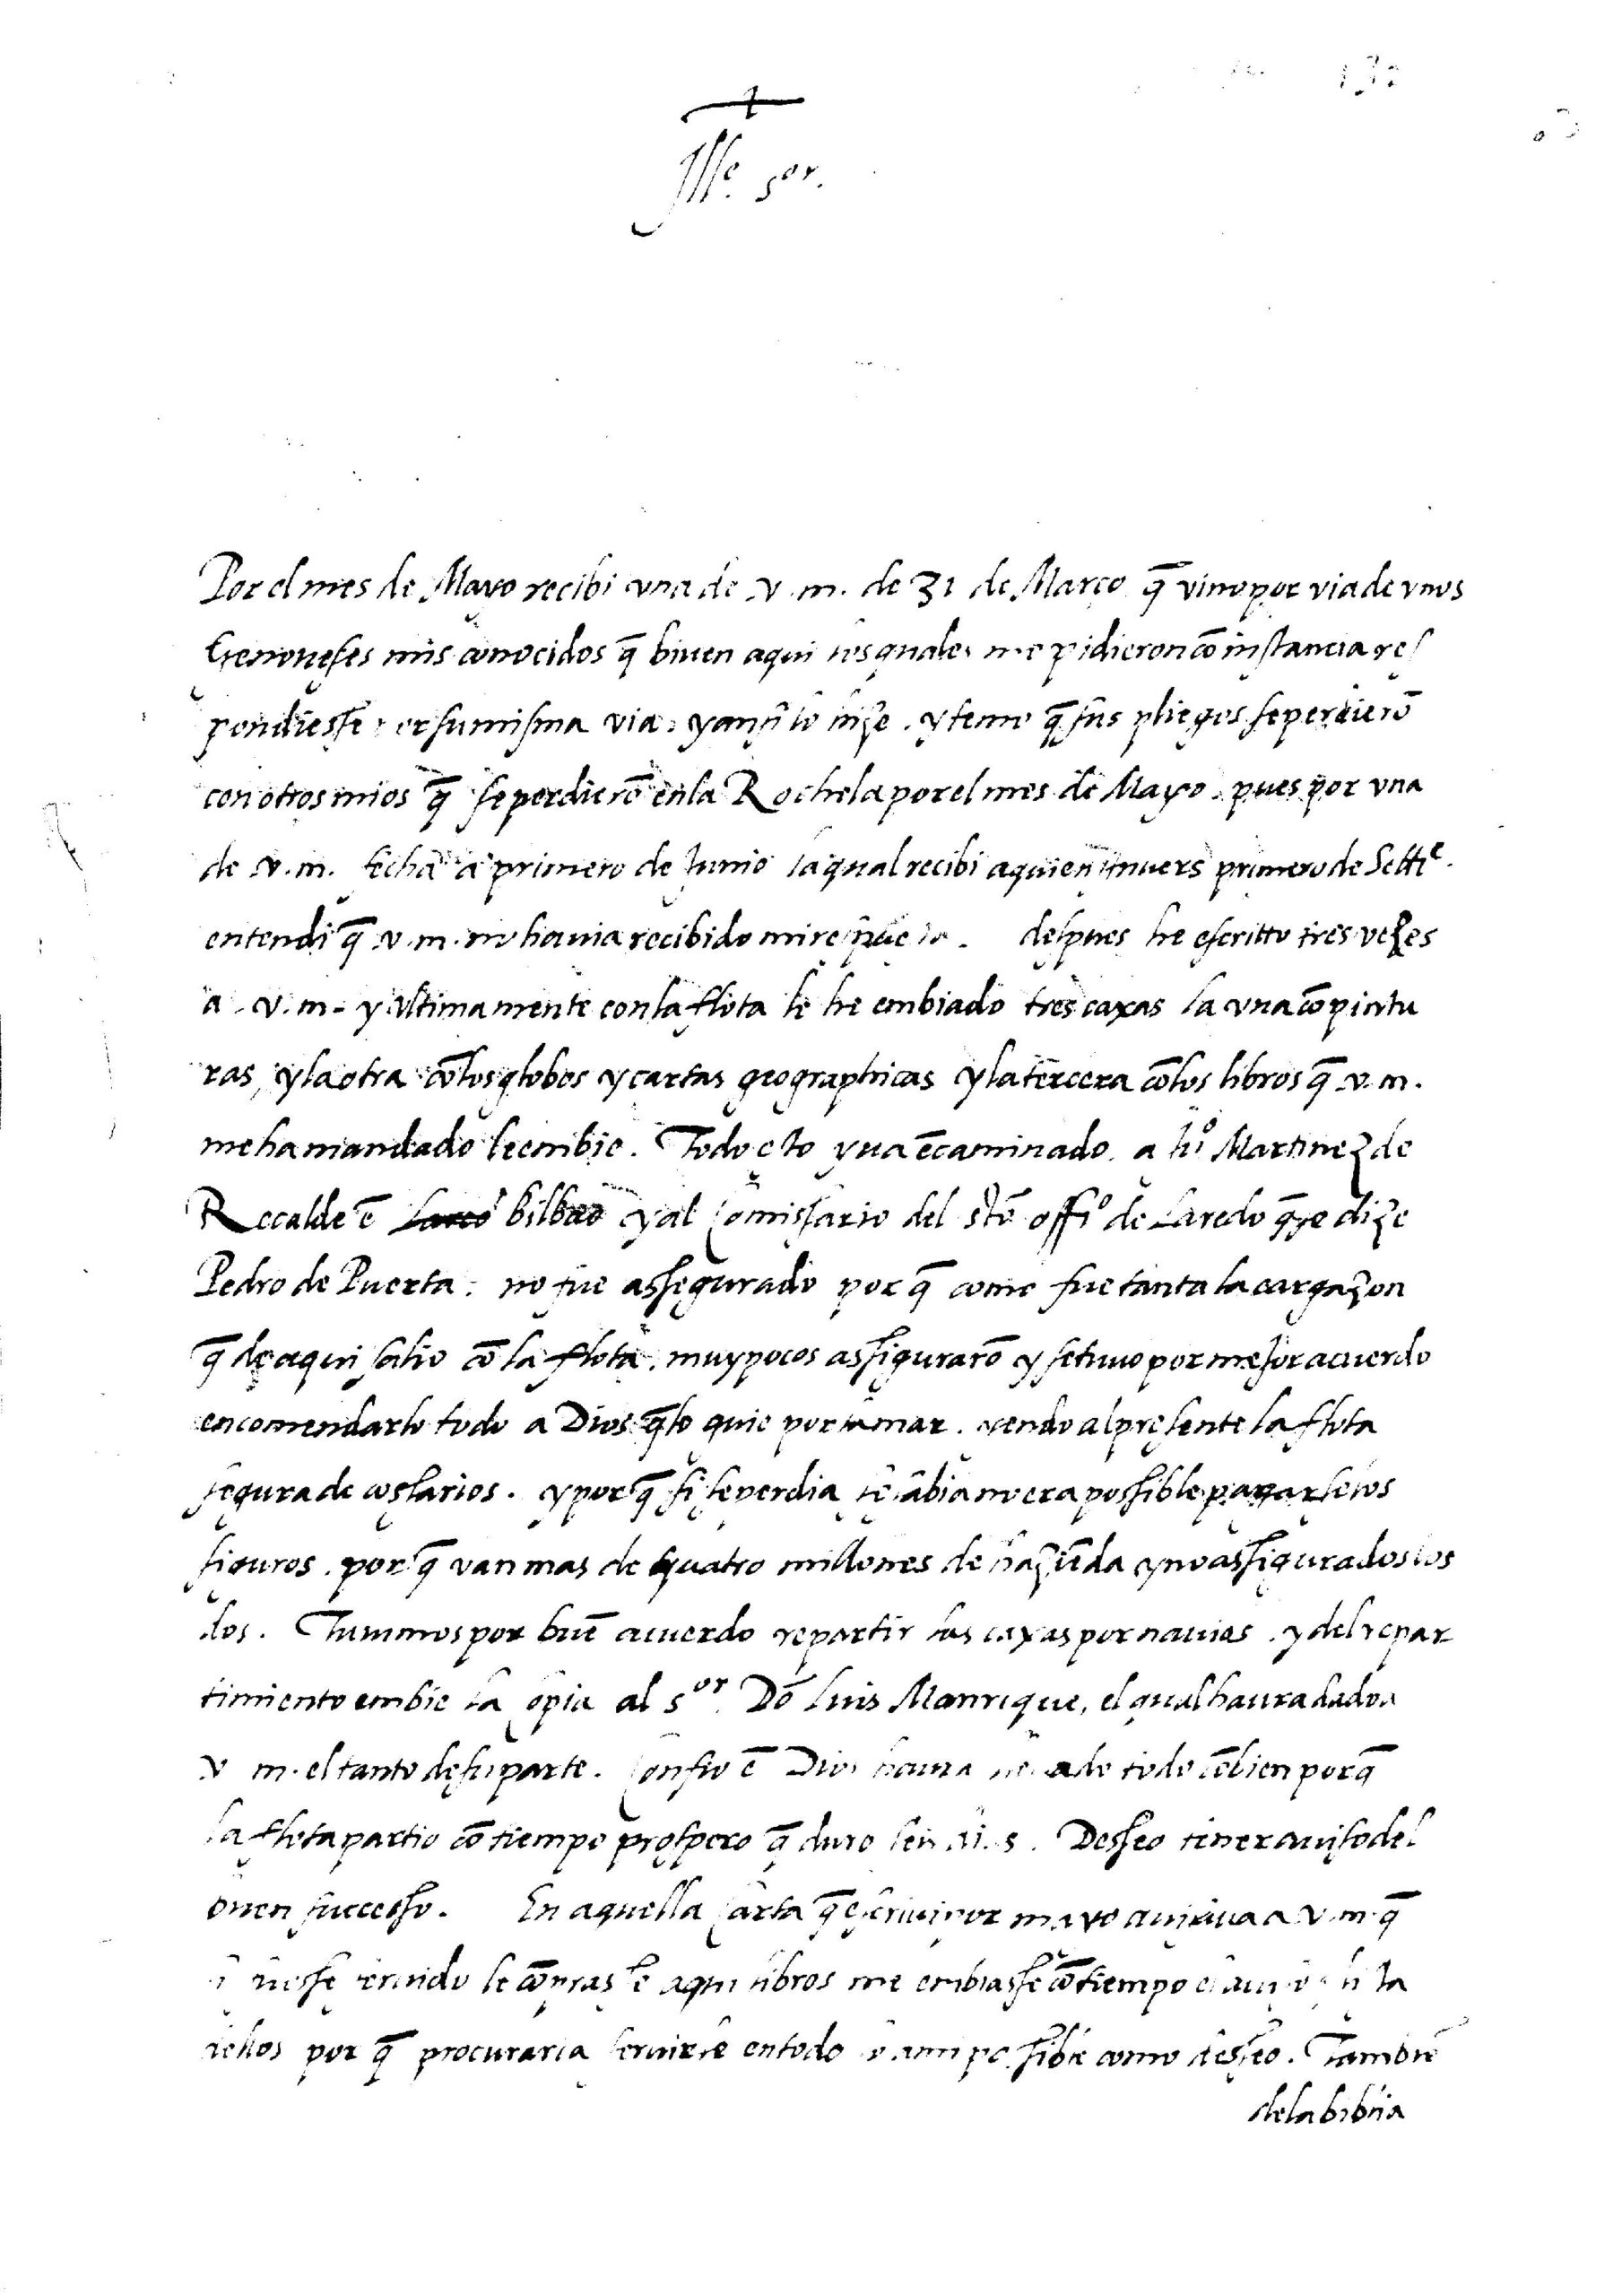 Ille. sor.
Por el mes de Mayo recibi vna de v.m. de 31 de Março q̄ vino por via de vnos
Genoueses mis conocidos q̄ biuen aqui los quales me pidieron cō instancia res
pondiesse por su misma via, y ansi lo hize. y temo q̄ sus pliegos se perdierō
con otros mios q̄ se perdierō en la Rochela por el mes de Mayo. pues por vna
de v.m. fecha a primero de Junio la qual recibi aqui en Anuers primero de Settie.
entendi q̄ v.m. no hauia recibido mi respuesta. despues he escritto tres vezes
a v.m. y vltimamente con la flota le he embiado tres caxas la vna cō pintu
ras, y la otra cō los globos y cartas geographicas y la tercera cō los libros q̄ v.m.
me ha mandado le embie. Todo esto yua ēcaminado a Juº Martinez de
Recalde ē bilbao y al Comissario del stō offiº de Laredo q̄ se dize
Pedro de Puerta. no fue assegurado por q̄ como fue tanta la cargazon
q̄ de aqui salio cō la flota. muy pocos assigurarō y se tuuo por mejor acuerdo
encomendarlo todo a Dios q̄ lo guie por la mar. yendo al presente la flota
segura de cossarios. y por q̄ si se perdia no era possible pagarse los
siguros. por q̄ van mas de quatro millones de haziēda y no assigurados los
dos. Tuuimos por buē acuerdo repartir las caxas por nauios. y del repar
timiento embie la copia al sor. Dō Luis Manrique, el qual haura dado a
v.m. el tanto de su parte. Confio ē Dios haura lleuado todo cō bien por q̄
la flota partio cō tiempo prospero q̄ duro seis dias. Desseo tener auiso del
buen successo. En aquella carta q̄ escriui por mayo auisaua a v.m. q̄
si fuesse seruido le cōprasse aqui libros me embiasse cō tiempo el auiso y lista
dellos por q̄ procuraria seruirle en todo lo a mi possible como desseo. Tambiē
de la biblia